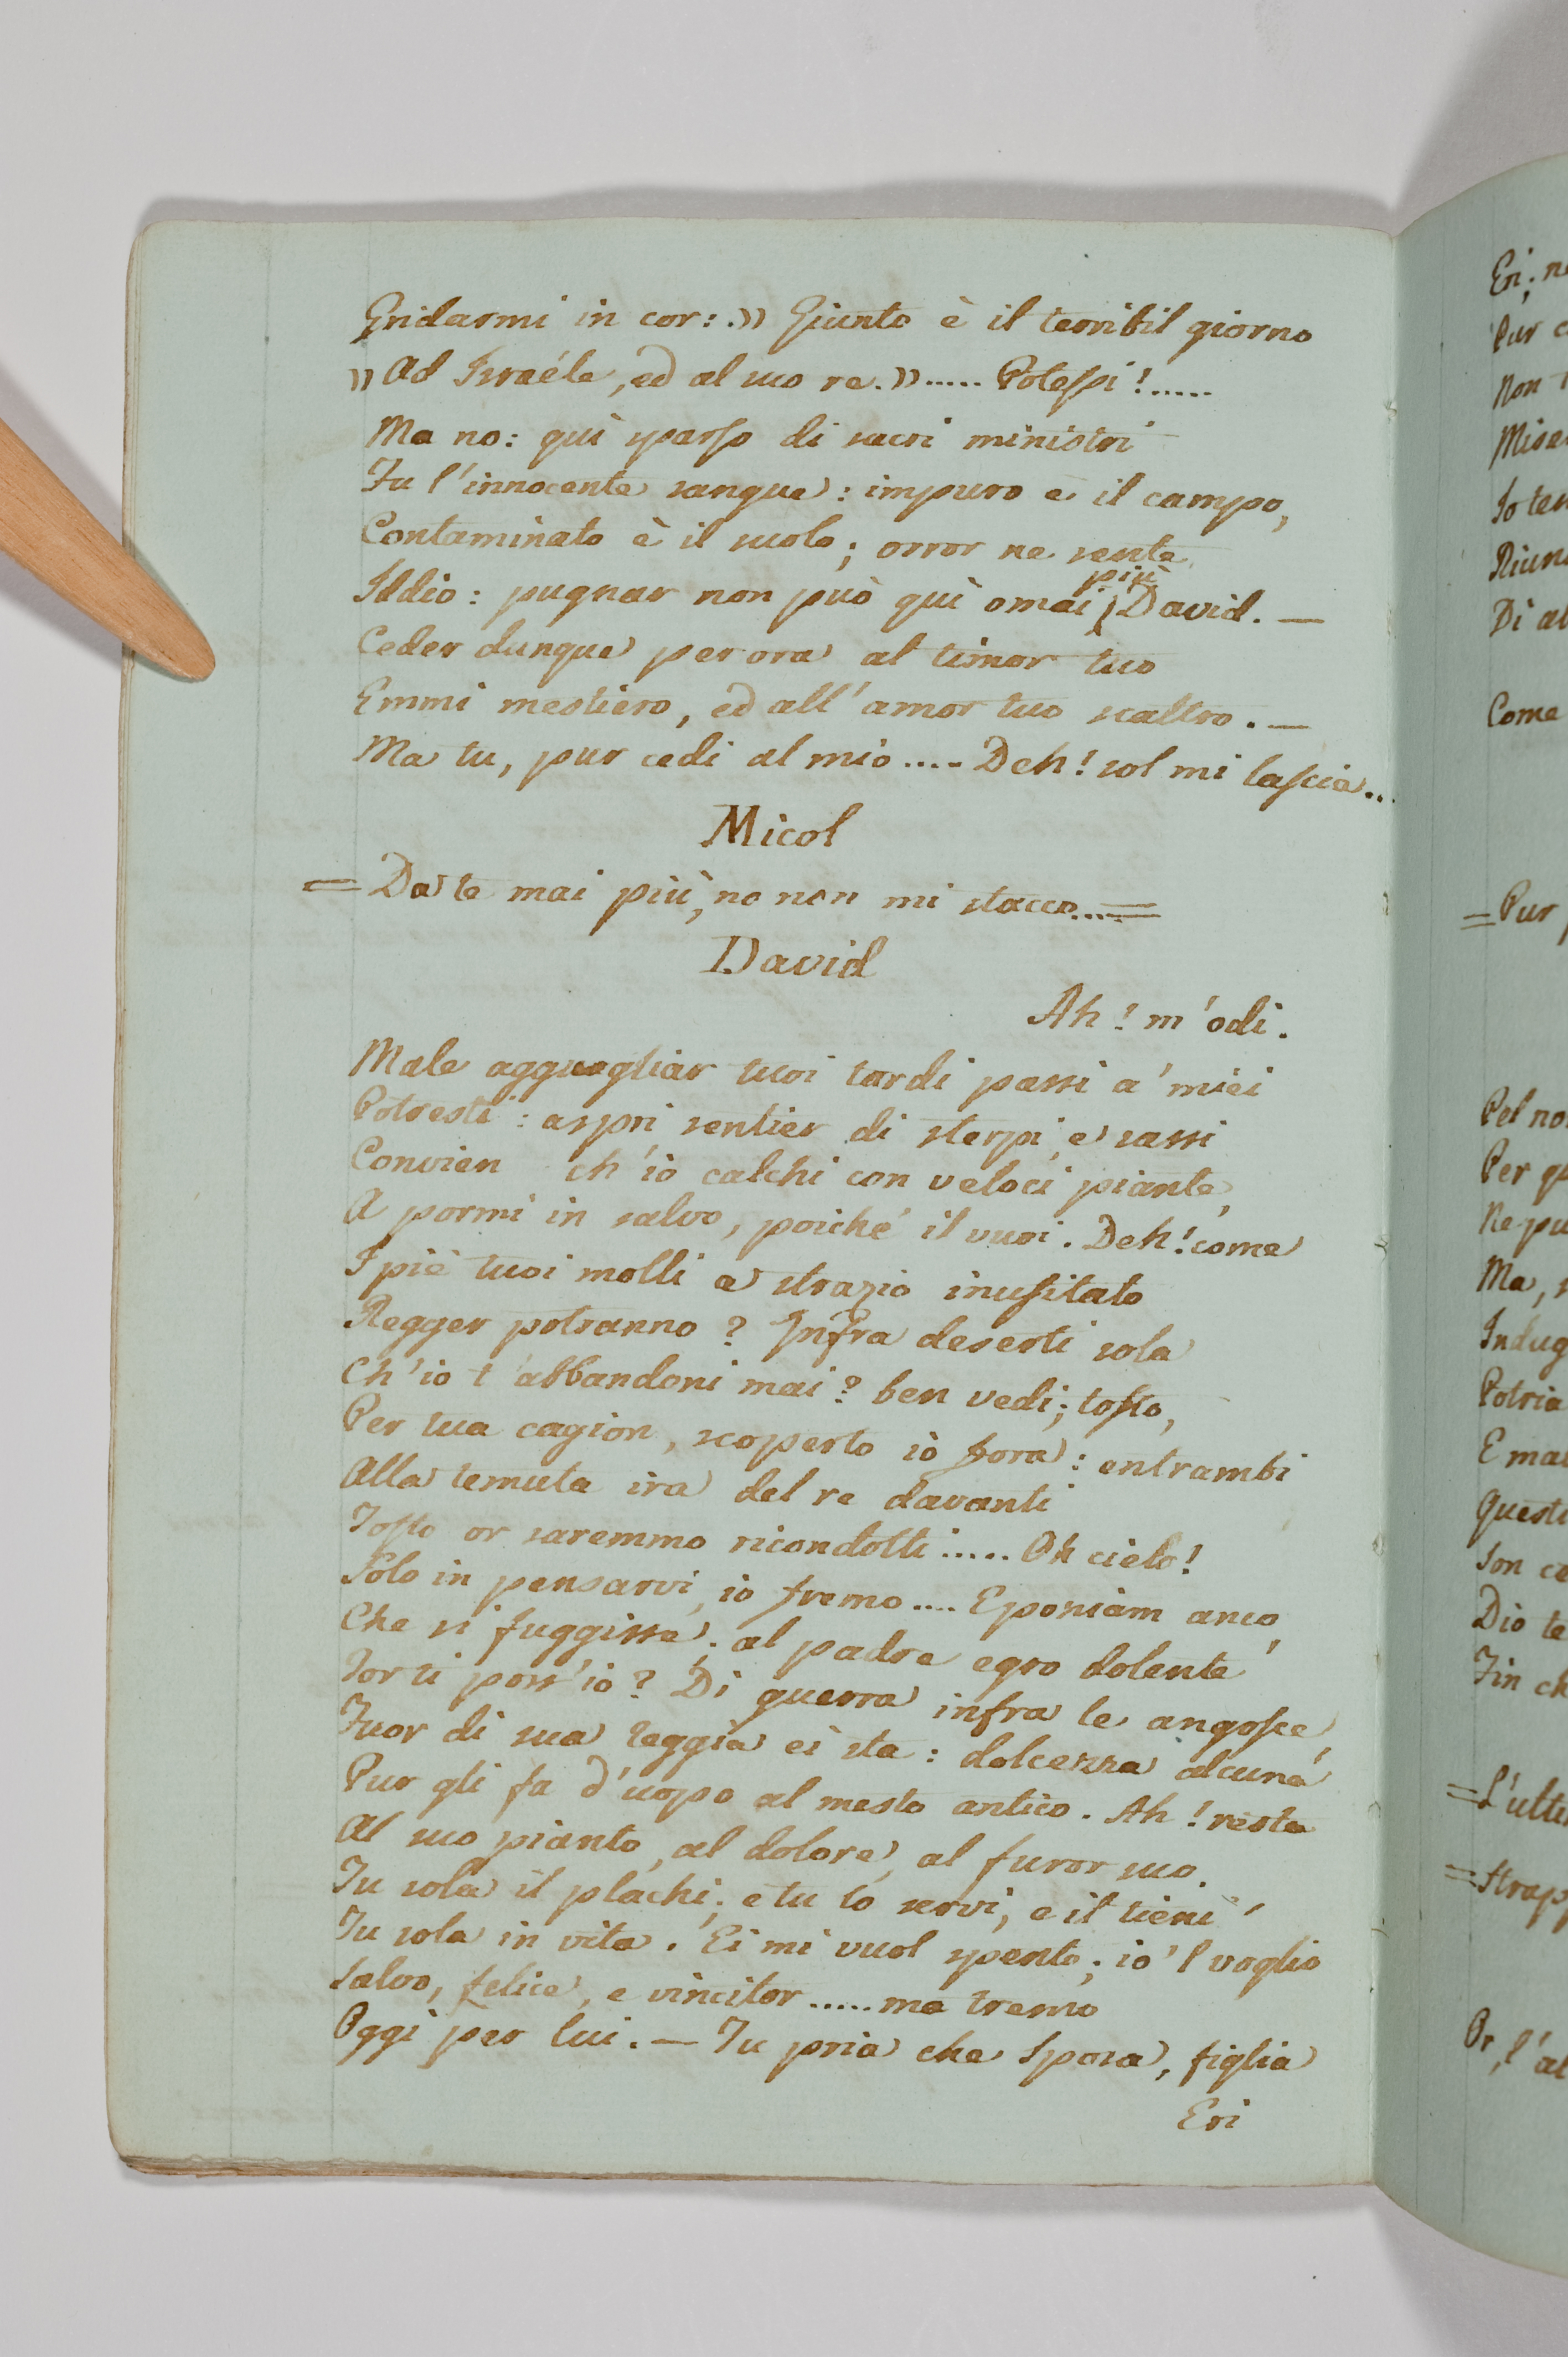 Gridarmi in cor: » Giunto è il terribil giorno
» Ad Israéle, ed al suo re. » ..... Potessi! .....
Ma no: quì sparso di sacri ministri
Fu l'innocente sangue: impuro e il campo,
Contaminato è il suolo; orror ne sente
più
Iddio: pugnar non può quì omai David. —
Ceder dunque per ora al timor tuo
Emmi mestiero, ed all'amor tuo scaltro. —
Ma tu, pur cedi al mio .... Deh! sol mi lascia...
Micol
= Da te mai più, no non mi stacco.... =
David
Ah! m'odi.
Male agguagliar tuoi tardi passi a' miei
Potresti: aspri sentier di sterpi, e sassi
Convien ch'io calchi con veloci piante,
A pormi in salvo, poiché il vuoi. Deh! come
I piè tuoi molli a strazio inusitato
Regger potranno? Infra deserti sola
Ch'io t'abbandoni mai? ben vedi; tosto,
Per tua cagion, scoperto io fora: entrambi
Alla temuta ira del re davanti
Tosto or saremmo ricondotti ..... Oh cielo!
Solo in pensarvi, io fremo .... E poniam anco,
Che si fuggisse; al padre egro dolente
Torti poss'io? Di guerra infra le angosce,
Fuor di sua reggia ei sta: dolcezza alcuna
Pur gli fa d'uopo al mesto antico. Ah! resta
Al suo pianto, al dolore, al furor suo.
Tu sola il plachi; e tu lo servi, e il tieni
Tu sola in vita. Ei mi vuol spento; io'l voglio
Salvo, felice, e vincitor ..... ma tremo
Oggi per lui. — Tu pria che Sposa, figlia
Eri
Eri; n
Pur
Non
Mise
Io te
Riun
Di al
Come
= Pur
Pel no
Per q
Ne pu
Ma,
Indug
Patria
E ma
Questi
Son ce
Dio te
Fin ch
= L'ulti
= Strap
Or, l'al